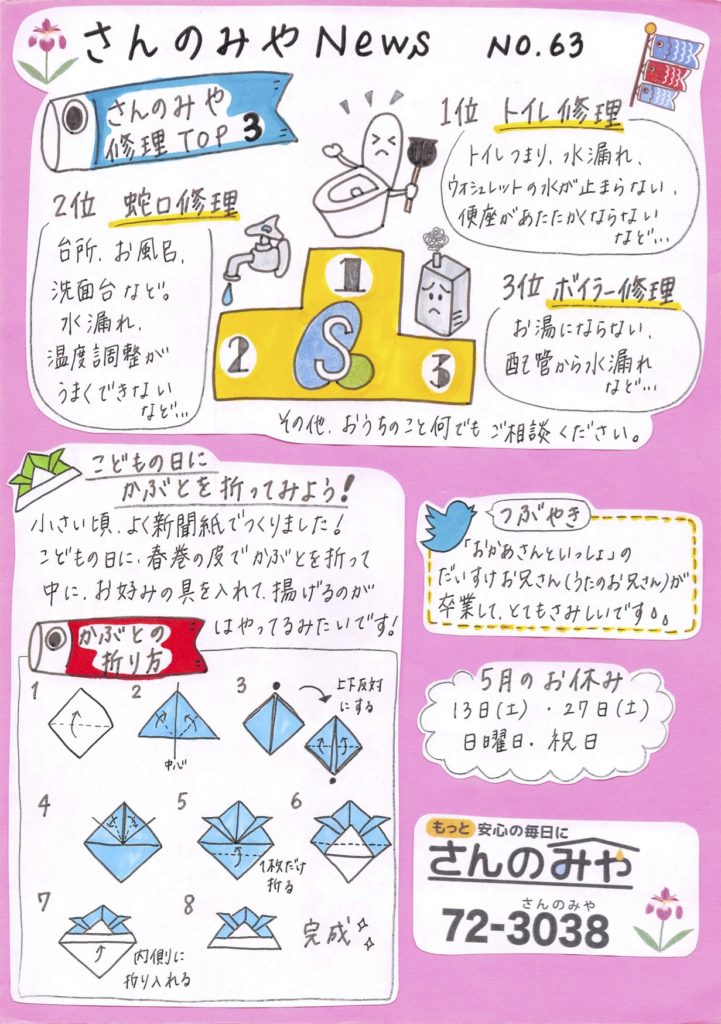 さんのみやNews NO.63
さんのみや
修理TOP3
1位 トイレ修理
トイレつまり、水漏れ、
ウォシュレットの水が止まらない、
便座があたたかくならない
など…
2位 蛇口修理
台所、お風呂、
洗面台など。
水漏れ、
温度調整が
うまくできない
など…
1
2
3
S
3位 ボイラー修理
お湯にならない、
配管から水漏れ
など…
その他、おうちのこと何でもご相談ください。
こどもの日に
かぶとを折ってみよう!
小さい頃、よく新聞紙でつくりました!
こどもの日に、春巻の皮でかぶとを折って
中に、お好みの具を入れて、揚げるのが
はやってるみたいです!
かぶとの
折り方
1
2
中心
3
上下反対
にする
4
5
1枚だけ
折る
6
7
内側に
折り入れる
8
完成
つぶやき
「おかあさんといっしょ」の
だいすけお兄さん(うたのお兄さん)が
卒業して、とてもさみしいです。。
5月のお休み
13日(土)・27日(土)
日曜日・祝日
もっと 安心の毎日に
さんのみや
さんのみや
72-3038